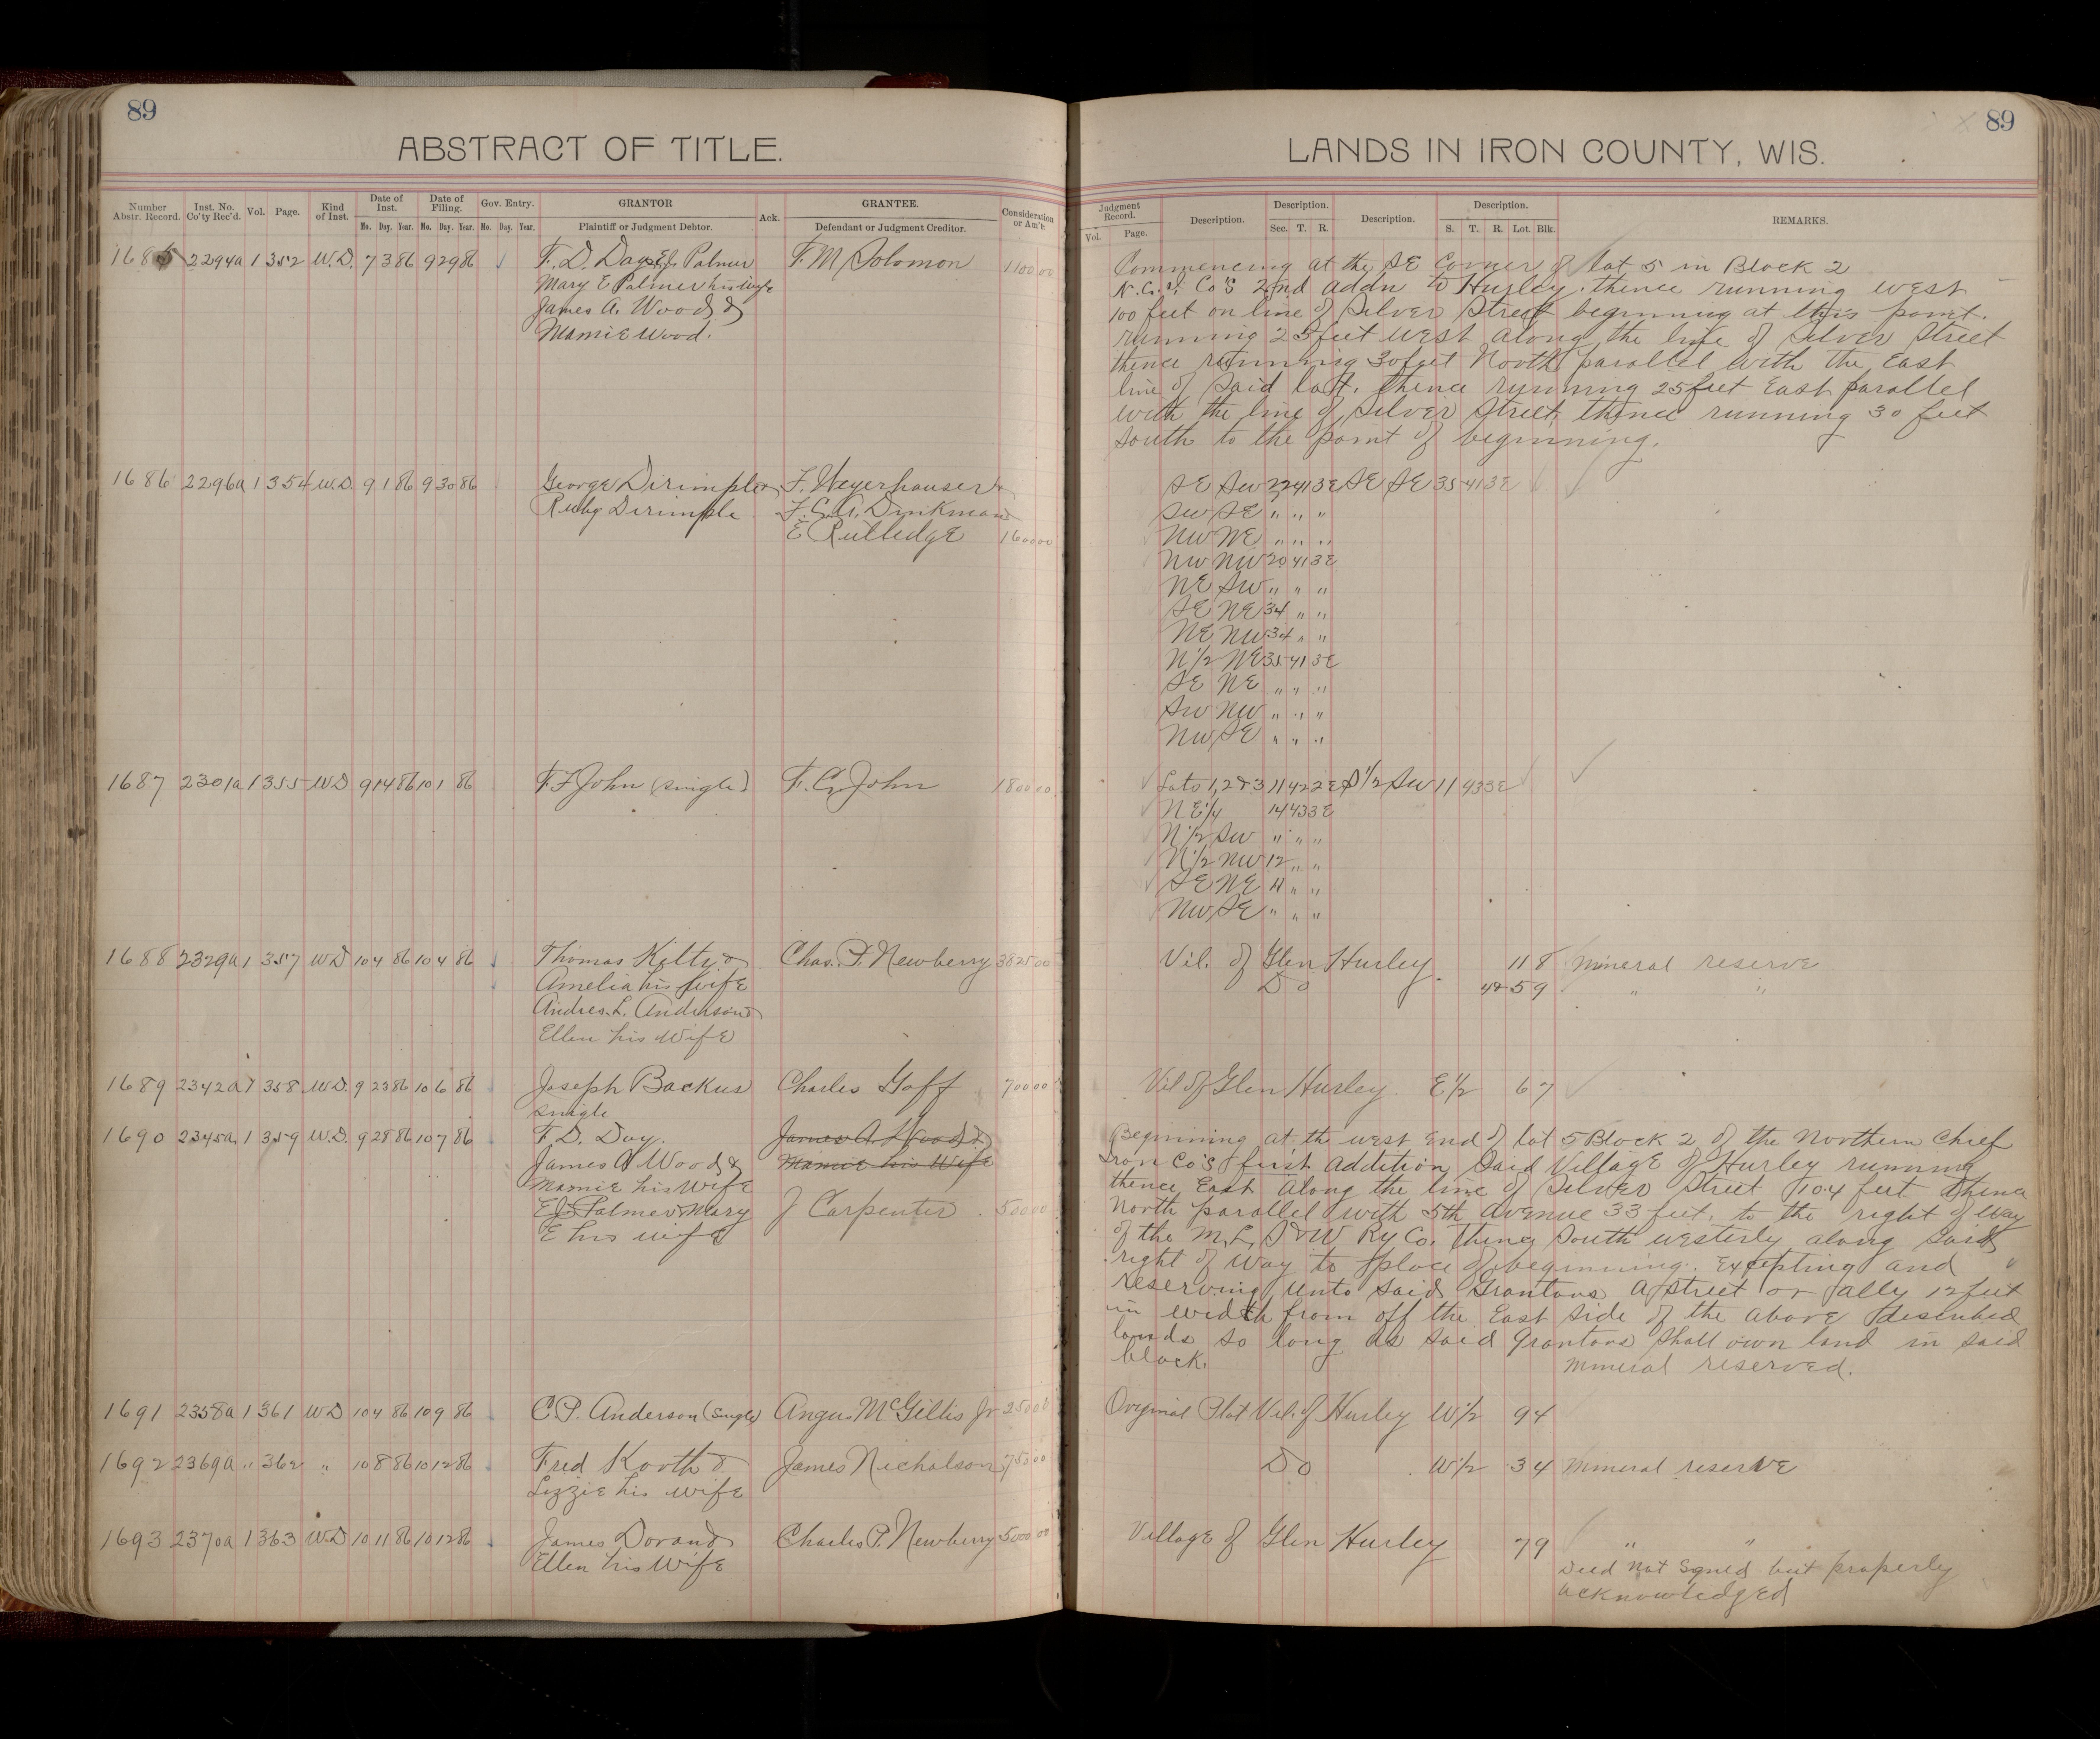 89
ABSTRACT OF TITLE.
Number Abstr. Record. Inst. No. Co'ty Rec'd. Vol. Page. Kind of Inst. Date of Inst. Mo. Day. Year. Date of Filing. Mo. Day. Year. Gov. Entry. Mo. Day. Year. GRANTOR Plaintiff or Judgment Debtor. Ack. GRANTEE. Defendant or Judgment Creditor. Consideration or Am't
1685 2294a 1 352 W.D. 7 3 86 9 29 86 F. D. Day E.J. Palmer F. M. Solomon 1100 00
Mary E Palmer his wife
James A. Wood &
Mamie Wood.
1686 2296a 1 354 W.D. 9 1 86 9 30 86 George Dirimple & F. Weyerhauser &
Ruby Dirimple F. C. A. Dinkman
E Rutledge 1600 00
1687 2301a 1 355 WD 9 14 86 10 1 86 F. F John (single) F. C. John 1800 00
1688 2329a 1 357 WD 10 4 86 10 4 86 Thomas Kilty & Chas. P. Newberry 3825 00
Amelia his wife
Andres. L. Anderson &
Ellen his wife
1689 2342a 1 358 W.D. 9 23 86 10 6 86 Joseph Backus Charles Goff 700 00
single
1690 2345a 1 359 W.D. 9 28 86 10 7 86 F. D. Day. James A. Wood &
James A Wood & Mamie his Wife
Mamie his Wife
E J. Palmer & Mary J Carpenter. 500 00
E his wife
1691 2358a 1 361 WD 10 4 86 10 9 86 C. P. Anderson (Single) Angus McGillis Jr 2500 0
1692 2369a " 362 " 10 8 86 10 12 86 Fred Korth & James Nicholson 750 00
Lizzie his wife
1693 2370a 1 363 W.D 10 11 86 10 12 86 James Doran & Charles P. Newberry 5000 00
Ellen his Wife
89
LANDS IN IRON COUNTY, WIS.
Judgment Record. Vol. Page. Description. Description. Sec. T. R. Description. Description. S. T. R. Lot. Blk. REMARKS.
Commencing at the SE Corner of lot 5 in Block 2
N.C.I. Co's 2nd addn to Hurley. thence running west
100 feet on line of Silver Street beginning at this point.
running 25 feet west along the line of Silver Street
thence running 30 feet North parallel with the East
line of said lot. thence running 25 feet East parallel
with the line of Silver Street, thence running 30 feet
South to the point of beginning.
SE SW 22 41 3E SE SE 35 41 3E
SW SE " " "
NW NE " " "
NW NW 20 41 3E
NE SW " " "
SE NE 34 " "
NE NW 34 " "
N 1/2 NE 35 41 3E
SE NE " " "
SW NW " " "
NW SE " " "
Lots 1, 2 & 3 11 42 2E S 1/2 SW 11 43 3E
NE 1/4 14 43 3E
N 1/2 SW " " "
N 1/2 NW 12 " "
SE NE 11 " "
NW SE " " "
Vil. of Glen Hurley 11 8 Mineral reserve
Do 4 & 5 9 " "
Vil of Glen Hurley. E 1/2 6 7
Beginning at th west end of lot 5 Block 2 of the Northern Chief
Iron Co's first addition Said Village of Hurley running
thence East along the line of Silver Street 104 feet thence
North parallel with 5th Avenue 33 feet. to the right of way
of the M. L. S & W Ry Co. thence South westerly along said
right of way to place of beginning. Excepting and
reserving unto said Grantors a street or ally 12 feet
in width from off the East side of the above described
lands so long as said Grantors shall own land in said
block. Mineral reserved.
Original Plat Vil. of Hurley W 1/2 9 4
Do W 1/2 3 4 Mineral reserve
Village of Glen Hurley 7 9 " "
Deed not signed but properly
acknowledged